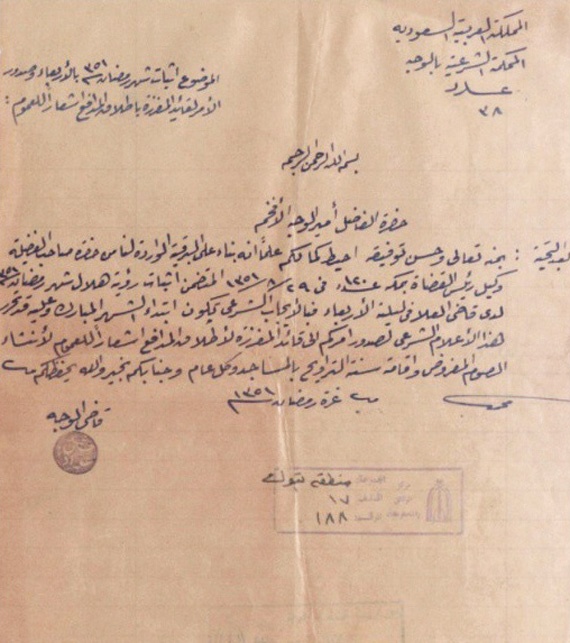 المملكة العربية السعودية
المحكمة الشرعية بالوجه
عدد
٣٨
الموضوع اثبات شهر رمضان ٣٥١ بالأربعاء وصدور
الأمر لقائد المفرزة باطلاق المدافع اشعاراً للعموم :
بسم الله الرحمن الرحيم
حضرة الفاضل أمير الوجه الأفخم
بعد التحية : بمنه تعالى وحسن توفيقه احيط كمالكم علماً انه بناء على البرقية الواردة لنا من حضرة صاحب الفضيلة
وكيل رئيس القضاة بمكة عدد ١٢٠٠ في ٢٩/٨/١٣٥١ المتضمن اثبات رؤية هلال شهر رمضان ٣٥١
لدى قاضي العلا في ليلة الأربعاء فبالإيجاب الشرعي يكون ابتداء الشهر المبارك وعليه قد تحرر
هذا الأعلام الشرعي لصدور امركم الى قائد المفرزة لأطلاق المدافع اشعاراً للعموم لأنشاء
الصوم المفروض واقامة سنة التراويح بالمساجد وكل عام وجنابكم بخير والله يحفظكم
غرة رمضان ١٣٥١
قاضي الوجه
منطقة تبوك
١٧
١٨٨